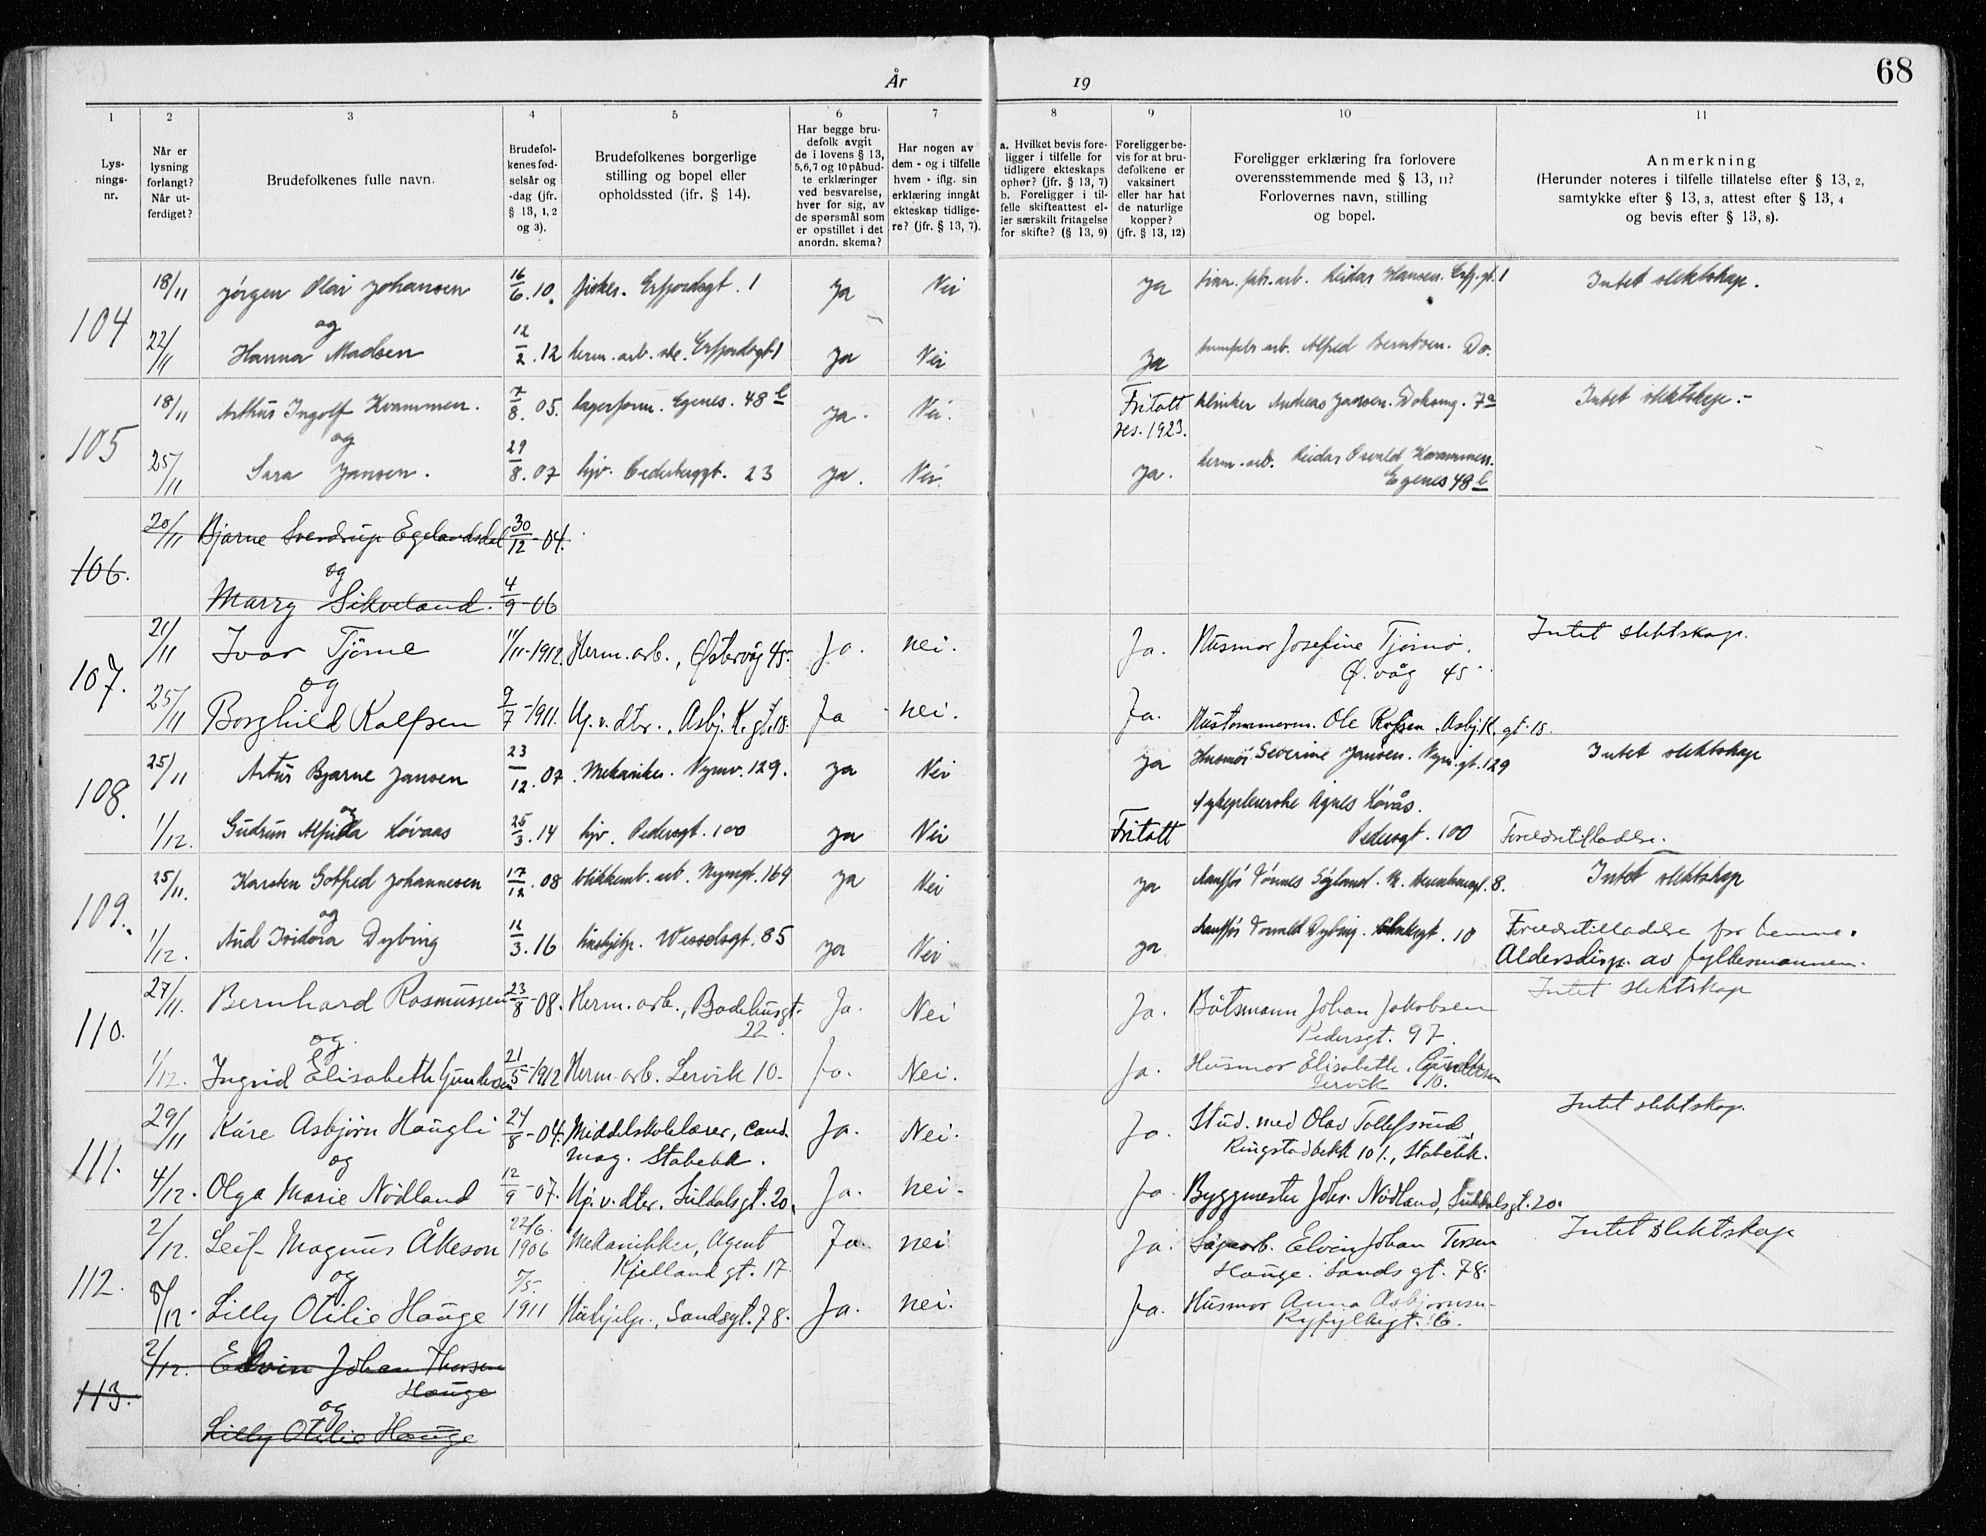 68
År 19
1 2 3 4 5 6 7 8 9 10 11
Lys-
nings-
nr.
Når er
lysning
forlangt?
Når ut-
ferdiget?
Brudefolkenes fulle navn.
Brudefol-
kenes fød-
selsår og
-dag (jfr.
§ 13, 1, 2
og 3).
Brudefolkenes borgerlige
stilling og bopel eller
opholdssted (jfr. § 14).
Har begge bru-
defolk avgit
de i lovens § 13,
5,6,7 og 10 påbud-
te erklæringer
ved besvarelse,
hver for sig, av
de spørsmål som
er opstillet i det
anordn. skema?
Har nogen av
dem - og i tilfelle
hvem - iflg. sin
erklæring inngått
ekteskap tidlige-
re? (jfr. § 13, 7).
a. Hvilket bevis fore-
ligger i tilfelle for
tidligere ekteskaps
ophør? (jfr. § 13, 7)
b. Foreligger i til-
felle skifteattest el-
ler særskilt fritagelse
for skifte? (§ 13, 9)
Foreligger be-
vis for at bru-
defolkene er
vaksinert
eller har hat
de naturlige
kopper?
(jfr. § 13, 12)
Foreligger erklæring fra forlovere
overensstemmende med § 13, 11?
Forlovernes navn, stilling
og bopel.
Anmerkning
(Herunder noteres i tilfelle tillatelse efter § 13, 2,
samtykke efter § 13, 3, attest efter § 13, 4
og bevis efter § 13, 8).
104
18/11 Jørgen Olai Johansen 16/6.10. fisker. Erfjordsgt. 1 Ja Nei Ja Reidar Hansen. Erfj.gt. 1 Intet slektskap.
og
22/11 Hanna Madsen 12/2.12 herm.arb.ske. Erfjordsgt 1 Ja Nei Ja Alfred Berntsen. Do.
105
18/11 Arthur Ingolf Kvammen. 7/8.05. lagerform. Egenes. 48 b Ja. Nei. Fritatt Andreas Jansen. 7a Intet slektskap.-
res. 1923.
og
25/11 Sara Jansen. 29/8.07 hjv. 23 Ja. Nei. Ja. herm.arb. Reidar Osvald Kvammen.
Egenes 48 b
106.
20/11 Bjarne Sverdrup Egelandsdal 30/12-04.
og
Marry Sikveland. 4/9-06
107.
21/11 Ivar Tjörne 11/11-1912. Herm.arb., Østervåg 45. Ja. nei. Ja. Husmor Josefine Tjørnø. Intet slektskap.
Ø.våg 45
og
25/11 Borghild Rolfsen 9/7-1911. Hj.v.dtr., Asbj.K.gt. 18. Ja nei. Ja. Hustømmerm. Ole Rolfsen. Asbj.K.gt. 18.
108.
25/11 Artur Bjarne Jansen 23/12.07 Mekaniker. Nymv. 129. Ja Nei Ja Husmor Severine Jansen. Nym.gt. 129 Intet slektskap
og
1/12. Gudrun Alfrida Løvaas 25/3.14 hjv. Pedersgt. 100 Ja Nei Fritatt Sykepleierske Agnes Løvås.
Pedersgt. 100 Foreldretilladelse.
109.
25/11. Karsten Gotfred Johannesen 17/12.08 blikkemb.arb. Nymsgt. 169 Ja Nei Ja Chauffør Tønnes 8. Intet slektskap
og
1/12. Aud Isidora Dybing 12/3.16 hushjelp. Wesselsgt. 85 Ja Nei Ja Chauffør Dybing. 10 Foreldretilladelse for henne.
Aldersdisp. av fylkesmannen.
110.
27/11. Bernhard Rasmussen 23/8-08. Herm.arb., Badehusgt. Ja. Nei Ja. Båtsmann Johan Jakobsen Intet slektskap
22. Pedersgt. 97.
og
1/12. Ingrid Elisabeth Gundersen 21/5-1912 Herm.arb. Lervik 10. Ja. Nei. Ja. Husmor Elisabeth Gundersen
Lervik 10.
111.
29/11 Kåre Asbjørn Haugli 24/8-04. Middelskolelærer, cand. Ja. Nei. Ja. Stud. med Olav Tollefsrud Intet slektskap.
mag. Stabekk. Ringstadbekk 101., Stabekk.
og
4/12. Olga Marie Nödland 12/9-07. Hj.v.dtr. Suldalsgt. 20. Ja. nei. Ja. Byggmester Johs. Nödland, Suldalsgt. 20.
112.
2/12. Leif Magnus Åkeson 22/6. 1906 Mekanikker, Agent Ja. nei Ja. Elvin Johan Torsen Intet slektskap
Kjelland gt. 17 Hauge. Sandsgt. 78.
og
8/12. Lilly Otilie Hauge 7/5. 1911 Hushjelp., Sandsgt. 78. Ja. nei. Ja. Husmor Anna Asbjørnsen
Ryfylkegt. 6.
113.
2/12. Edvin Johan Thorsen
Hauge
og
Lilly Otilie Hauge